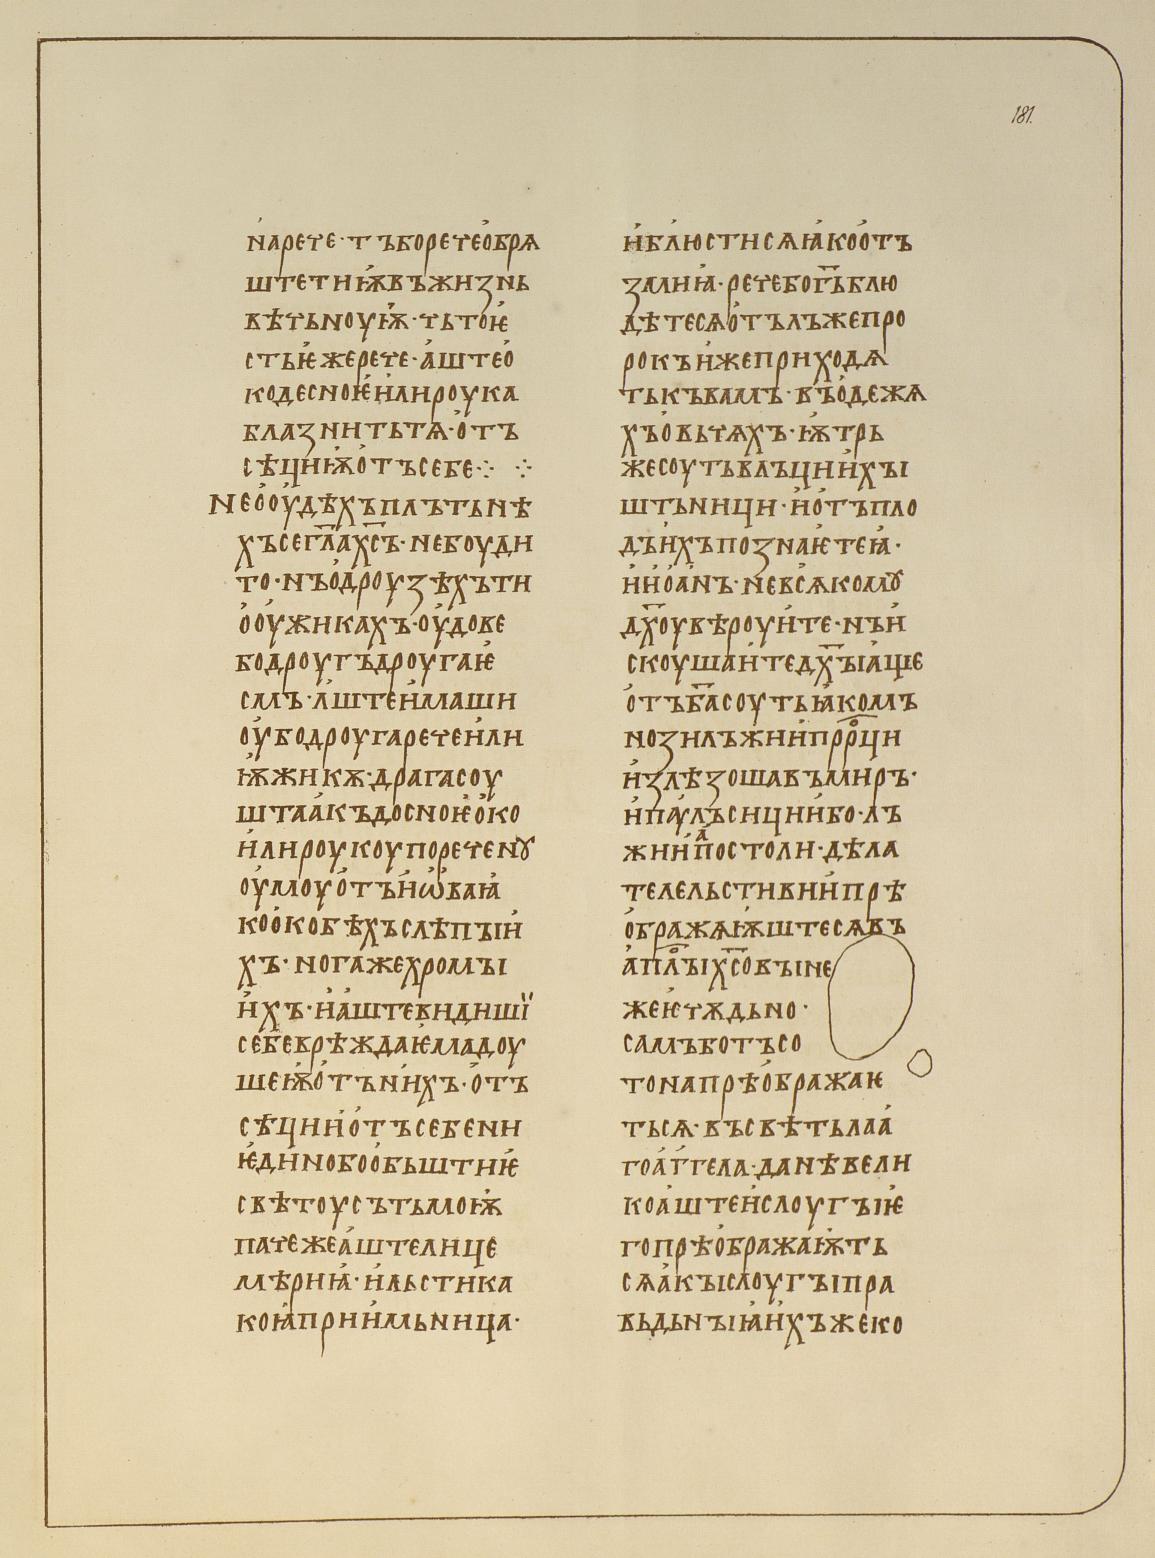 181.
нарете· тъборетеобрѧ
штетниѭвъжизнь
вѣтьноуѭ· тьтоѥ
стьѥжерете· аштео
кодесноѥилироука
блазнитьтѧ· отъ
сѣциѭотъсебе⁘ ⁘
Неооудѣхъплътьнѣ
хъсегл҃ахс҃ъ· небоуди
то· нъодроузѣхъти
ооужикахъ· оудобе
бодроугъдроугаѥ
смъ· аштеимаши
оубодроугаретеили
ѭжикѫ· драгасоу
штаакъдосноѥоко
илироукоупоретенꙋ
оумоуотъиѡваꙗ
коокобѣхъслѣпꙑи
хъ· ногажехромꙑ
ихъ· иаштевидишї
себеврѣждаѥмадоу
шеѭотънихъ· отъ
сѣциотъсебени
ѥдинобообьштиѥ
свѣтоусътьмоѭ
патежеаштелице
мѣриꙗ· ильстика
коꙗприимьница·
иблюстисѧꙗкоотъ
залиꙗ· ретебог҃ъблю
дѣтесѧотълъжепро
рокъижеприходѧ
тькъвамъ· въодежѧ
хъовьчѧхъ· ѭтрь
жесоутьвлъциихꙑ
штьници· иотъпло
дъихъпознаѥтеꙗ·
ииоанъ· невсѧкомꙋ
дх҃оувѣроуите· нъи
скоушаитедх҃ꙑаще
отъб҃асоутьꙗкомъ
нозилъжиипрр҃ци
излѣзошавъмиръ·
ипаулъсициибо· лъ
жииапостоли· дѣла
телельстивиипрѣ
ображѧѭштесѧвъ
апл҃ꙑхс҃овꙑне
жеѥтѫдьно·
самъботъсо
тонапрѣображаѥ
тьсѧ· въсвѣтьлаа
гоаггела· данѣвели
коаштеислоугꙑѥ
гопрѣображаѭть
сѧакꙑслоугꙑпра
вьдьнꙑꙗихъжеко